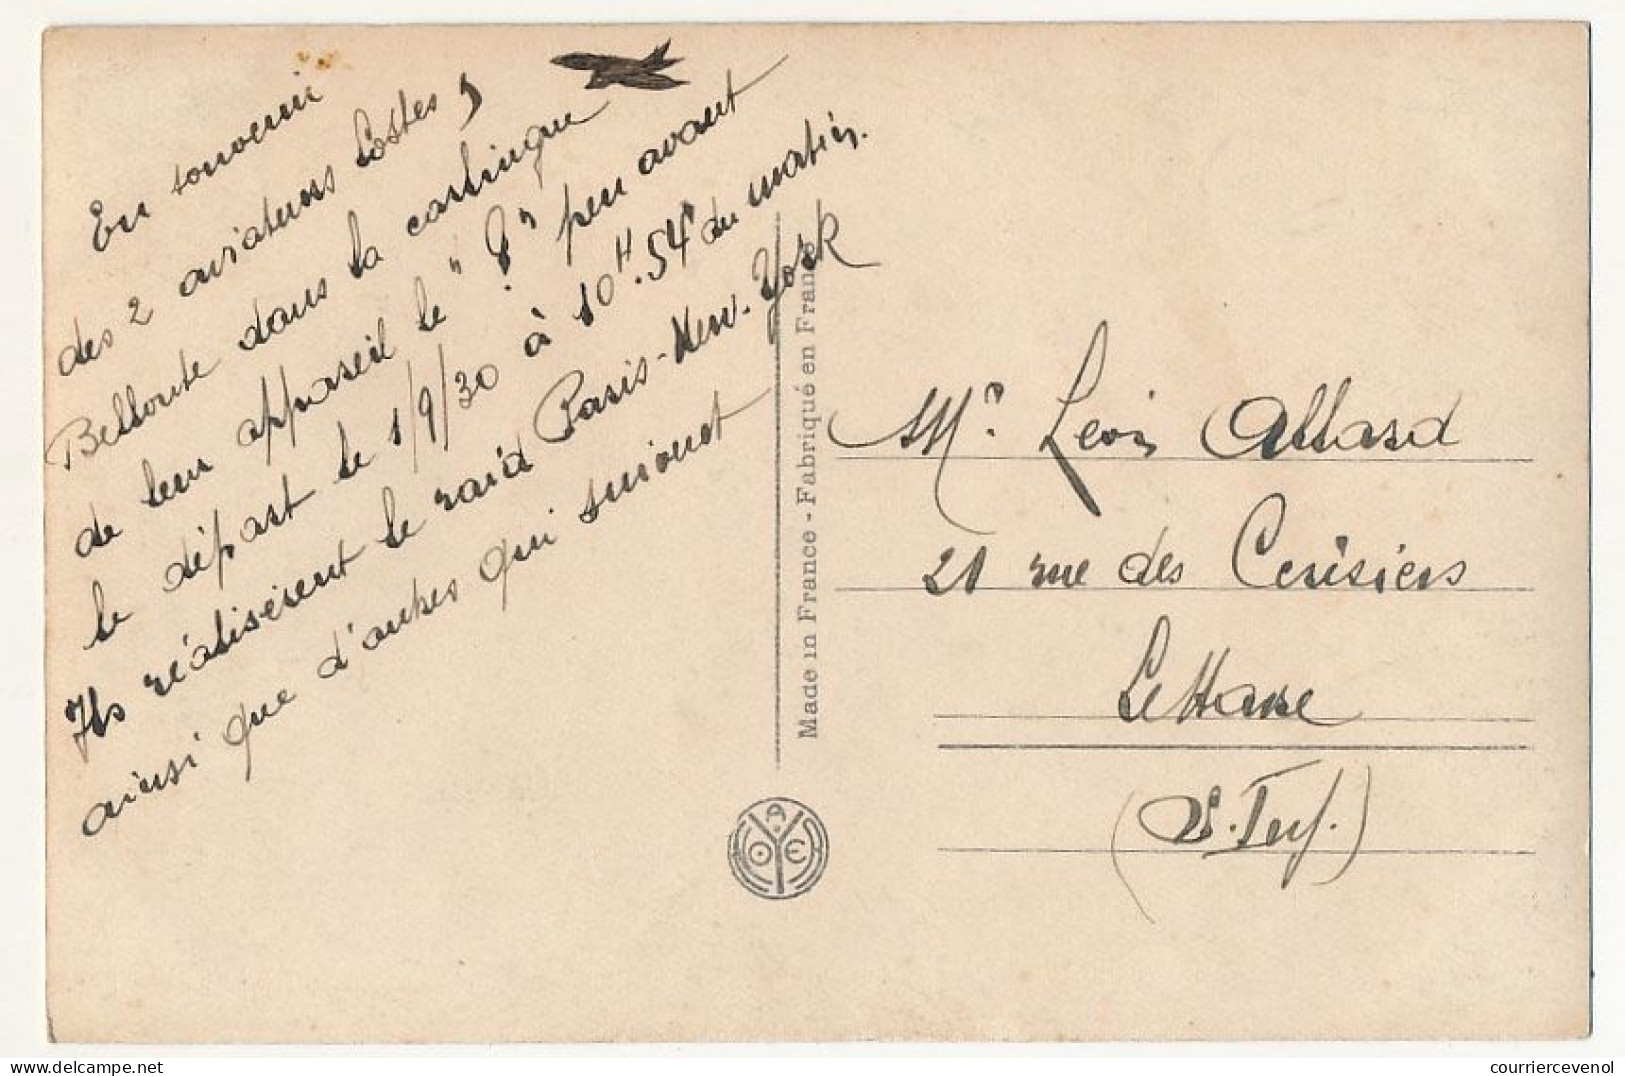 En souvenir
des 2 aviateurs Costes &
Bellonte dans la carlingue
de leur appareil le "?" peu avant
le départ le 1/9/30 à 10H.54' du matin.
Ils réalisèrent le raid Paris-New-York
ainsi que d'autres qui suivent
Made in France - Fabriqué en France
Mr. Léon Allard
21 rue des Cerisiers
Le Havre
(S. Inf.)
courriercevenol